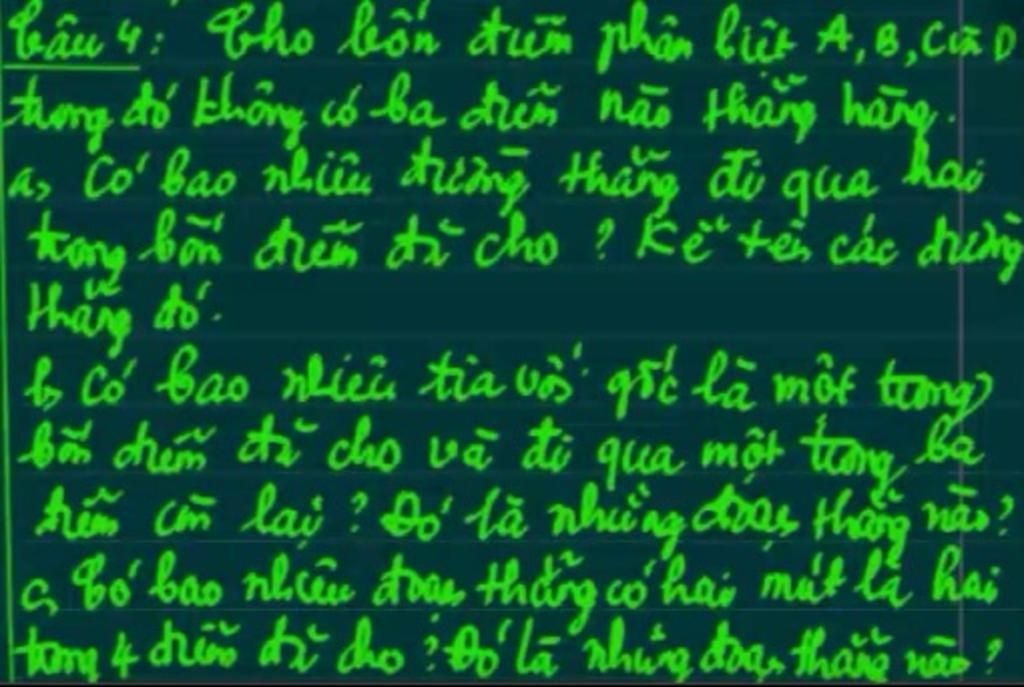 Câu 4: Cho bốn điểm phân biệt A, B, C và D
trong đó không có ba điểm nào thẳng hàng.
a, Có bao nhiêu đường thẳng đi qua hai
trong bốn điểm đã cho? Kể tên các đường
thẳng đó.
b, Có bao nhiêu tia với gốc là một trong
bốn điểm đã cho và đi qua một trong ba
điểm còn lại? Đó là những đoạn thẳng nào?
c, Có bao nhiêu đoạn thẳng có hai mút là hai
trong 4 điểm đã cho? Đó là những đoạn thẳng nào?